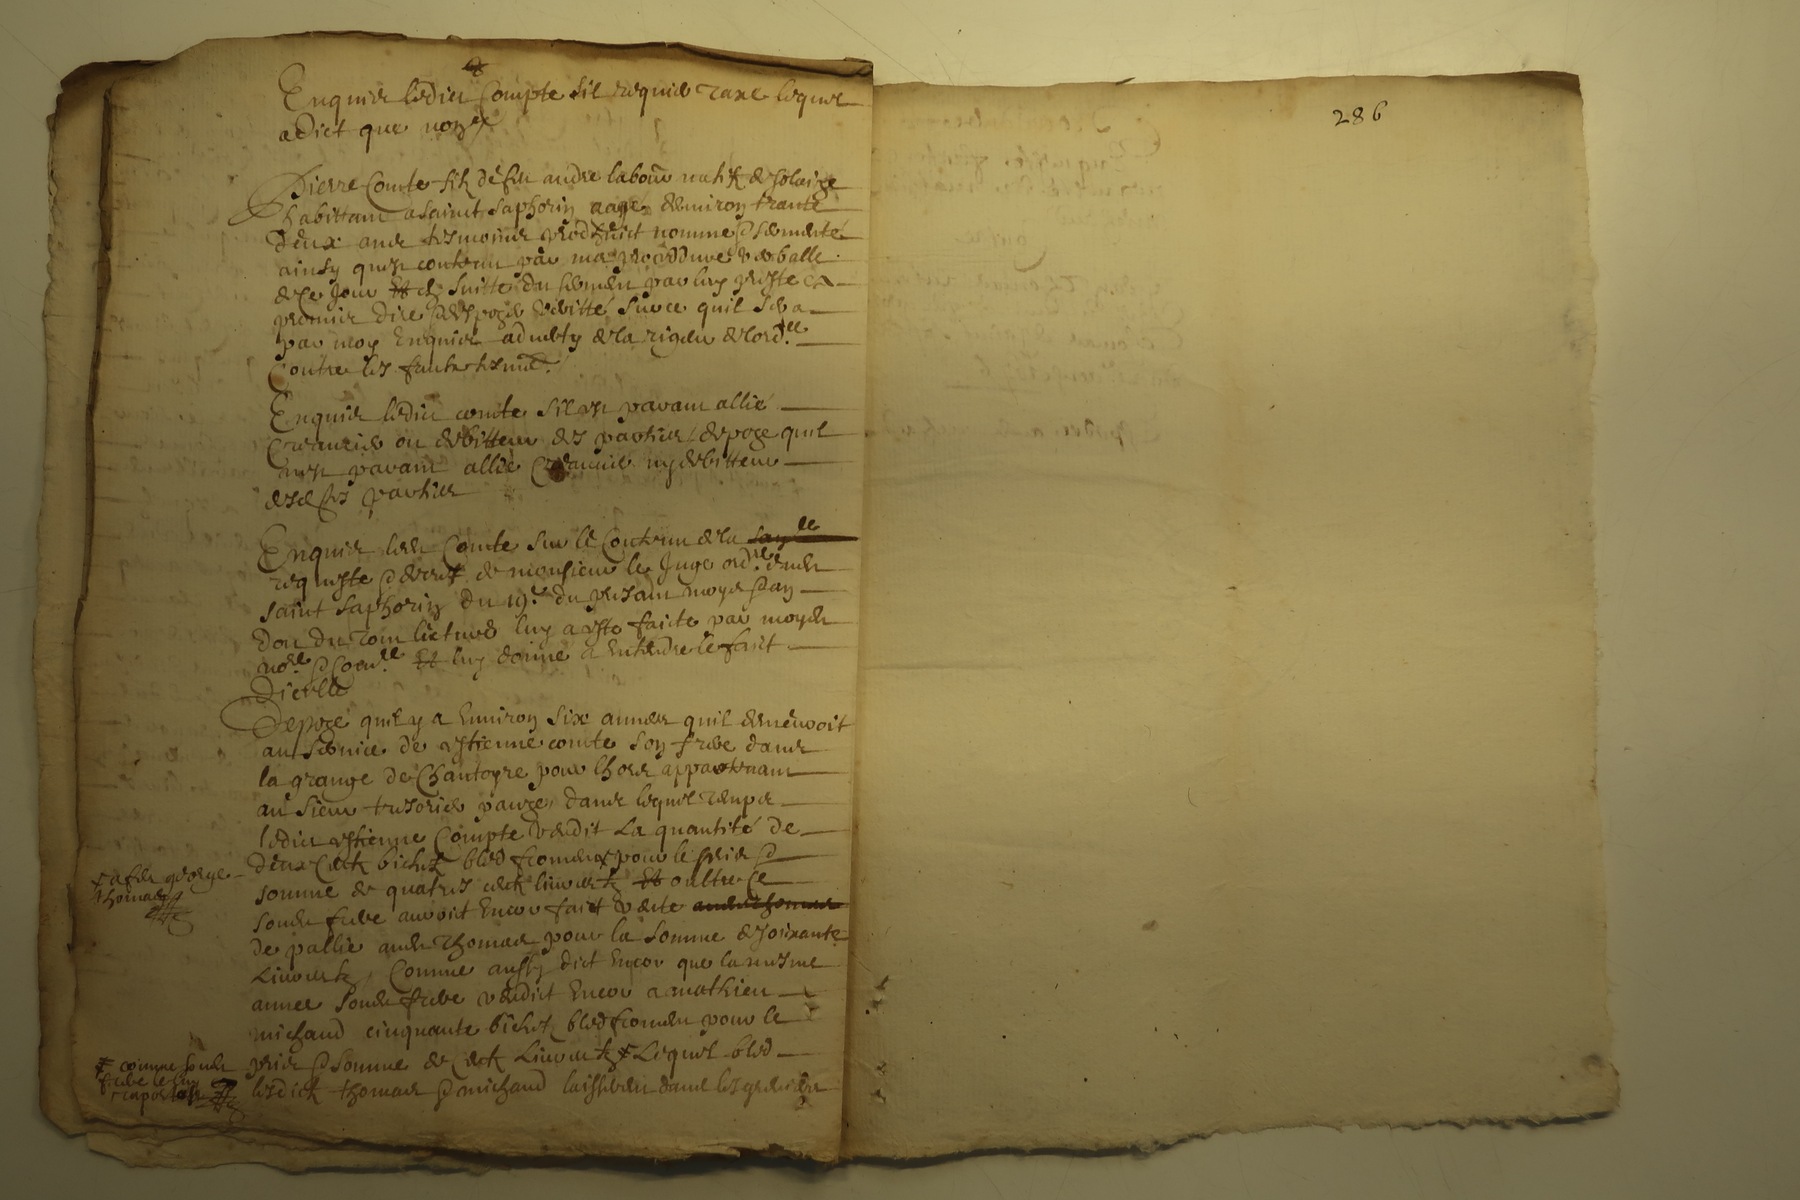 Enquis ledict Compte sil requier taxe lequel
a dict que non
Pierre Comte filz de feu andre labour natif de Solaize
habittant a saint Saphorin aagé denviron trante
deux ans tesmoins produict nommé & sermenté
ainsy quest contenu par ma procedure verballe
de ce jour Et en suitte du serment par luy presté a
promis dire & depozer veritté sur ce quil sera
par moy Enquis adverty de la rigueur de lord.ce
Contre les faux tesmoins
Enquis ledict comte sil est parant allié
Creancier ou debitteur des parties depoze quil
nest parant allié Creancier ny debitteur
desdictes parties
Enquis ledict Comte sur le Contenu de la
requeste & decret de monsieur le Juge ord.re dudict
saint Saphorin du 19.e du presant moys & an
dont du tout lieture luy a esté faicte par moydict
no.re & Com.re Et luy donné a Entendre le faict
Dicelle
Depoze quil y a Environ six années quil demeuroit
au service de estienne comte son frere dans
la grange de Chantoyre pour lhors appartenant
au sieur tresorier pauze dans lequel temps
ledict estienne Compte vendit La quantité de
deux Cent bichetz bled froment pour le prix &
somme de quatres cent livres tz Et oultre ce
sondict frere auroit Encor faict vente
de pallie audict Thomas pour la somme de soixante
Livres tz Comme aussy dict Encor que la mesme
annee sondict frere vendict Encor a mathieu
michaud cinquante bichetz bled froment pour le
prix & somme de Cent Livres tz Lequel bled
lesdictz thomas & michaud laisserent dans les greniers
a feu george
thomas
comme sondict
frere le luy
raporta
286